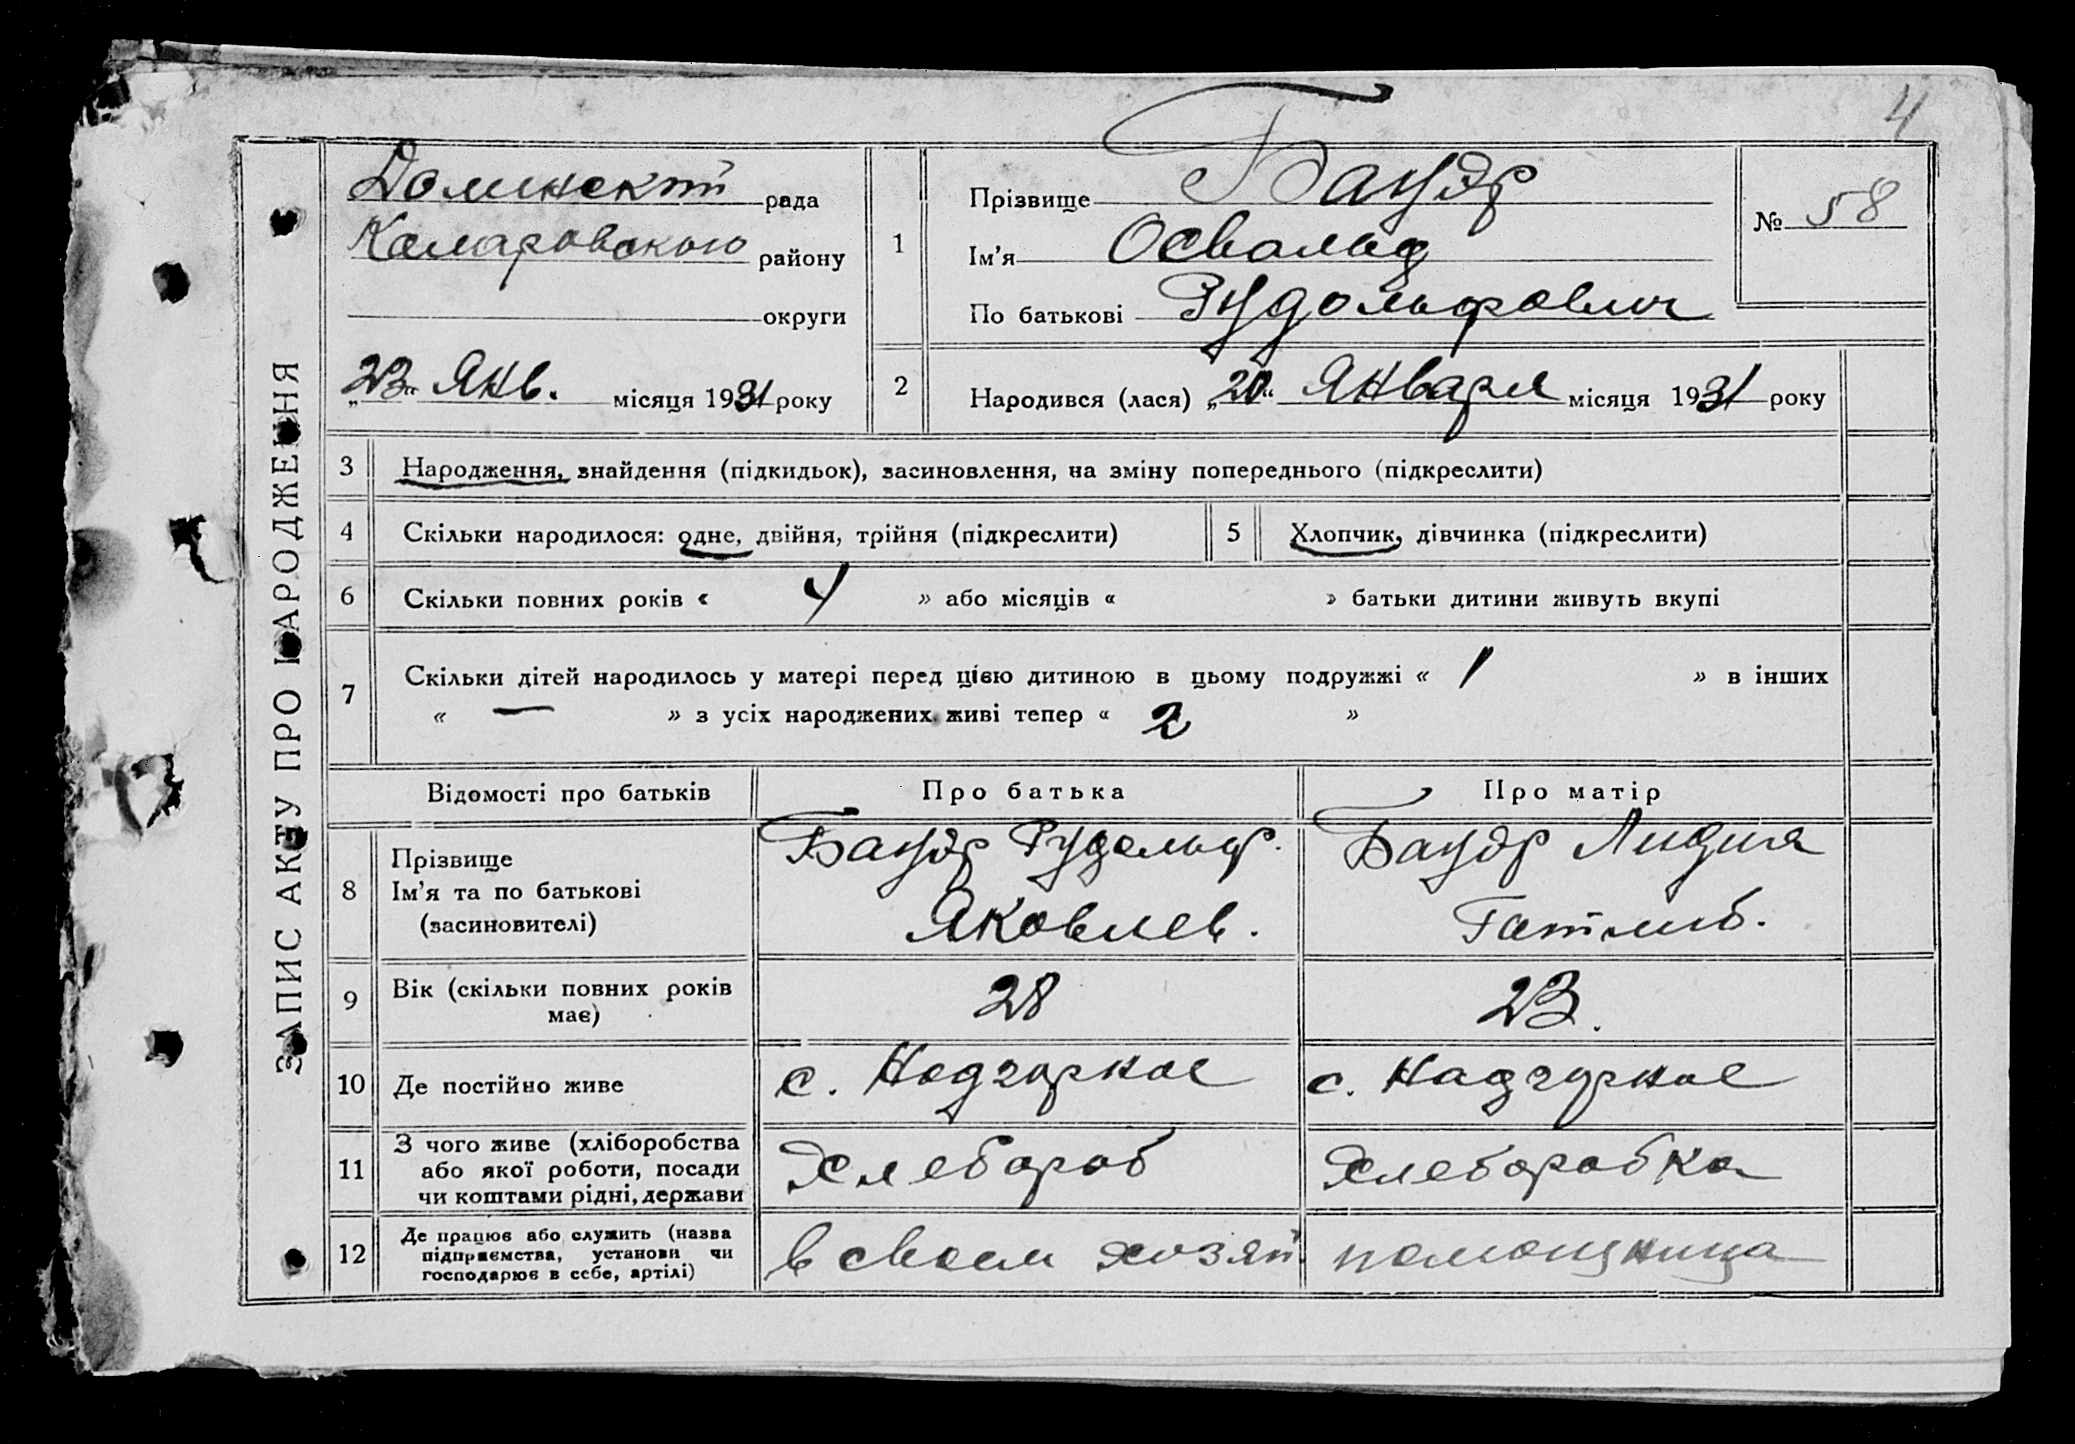 4
ЗАПИС АКТУ ПРО НАРОДЖЕННЯ
Долинской рада
Комаровского району
округи
„23“ Янв. місяця 1931 року
1
Прізвище Бауэр
Ім'я Освальд
По батькові Рудольфович
№ 58
2
Народився (лася) „20“ Января місяця 1931 року
3 Народження, знайдення (підкидьок), засиновлення, на зміну попереднього (підкреслити)
4 Скільки народилося: одне, двійня, трійня (підкреслити)
5 Хлопчик, дівчинка (підкреслити)
6 Скільки повних років « 4 » або місяців « » батьки дитини живуть вкупі
7 Скільки дітей народилось у матері перед цією дитиною в цьому подружжі « 1 » в інших
« — » з усіх народжених живі тепер « 2 »
Відомості про батьків Про батька Про матір
8 Прізвище
Ім'я та по батькові
(засиновителі)
Бауэр Рудольф.
Яковлев.
Бауэр Лидия
Готлиб.
9 Вік (скільки повних років
має)
28
23.
10 Де постійно живе
с. Надгорное
с. Надгорное
11 З чого живе (хліборобства
або якої роботи, посади
чи коштами рідні, держави
Хлебороб
Хлеборобка
12 Де працює або служить (назва
підприємства, установи чи
господарює в себе, артілі)
в своем хозяй.
помощница